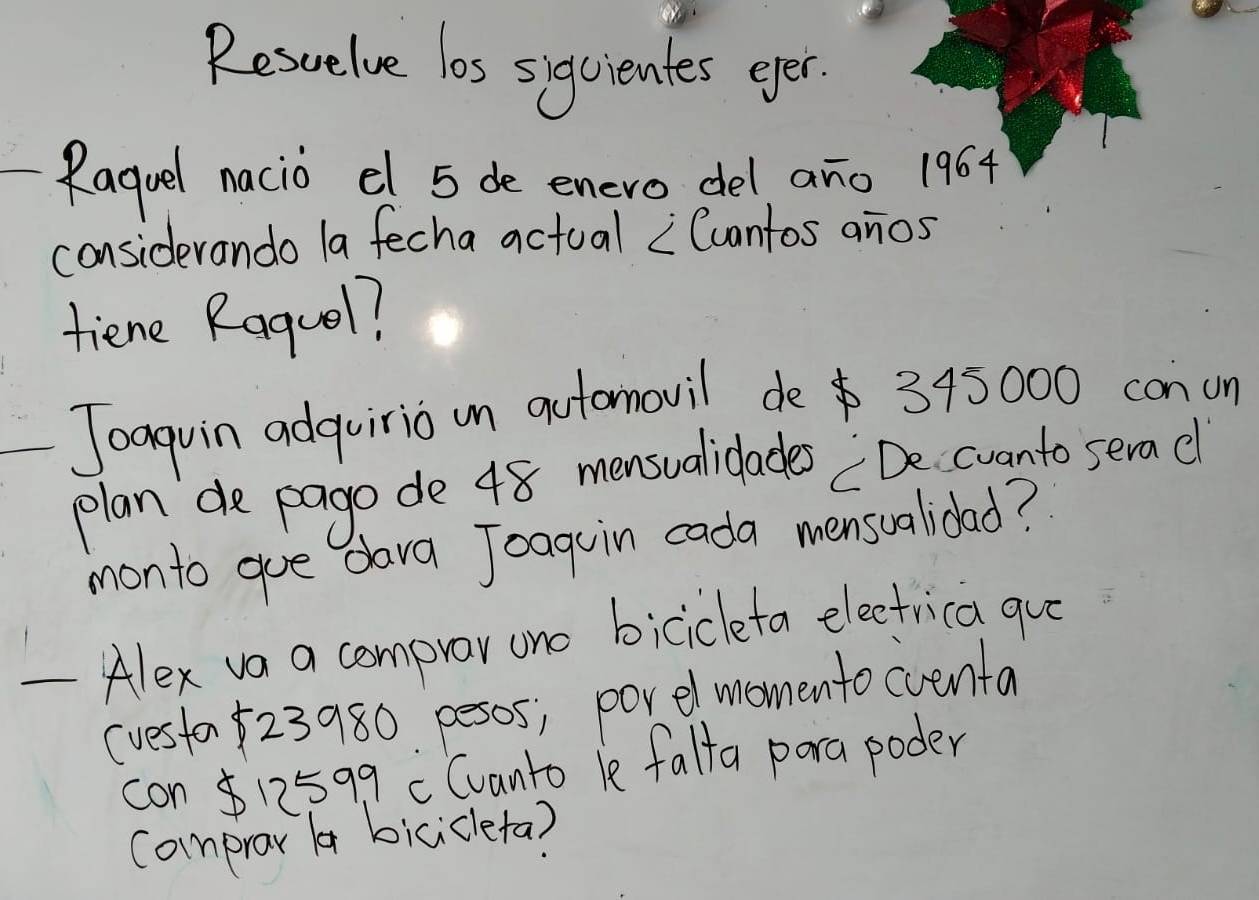 Resuelve los siguientes ejer.
- Raquel nació el 5 de enero del año 1964
considerando la fecha actual ¿Cuantos años
tiene Raquel?
- Joaquin adquirió un automovil de $ 345000 con un
plan de pago de 48 mensualidades ¿De cuanto sera el
monto que dara Joaquin cada mensualidad?
- Alex va a comprar una bicicleta electrica que
cuesta $23980 pesos; por el momento cuenta
con $12599 ¿Cuanto le falta para poder
comprar la bicicleta?